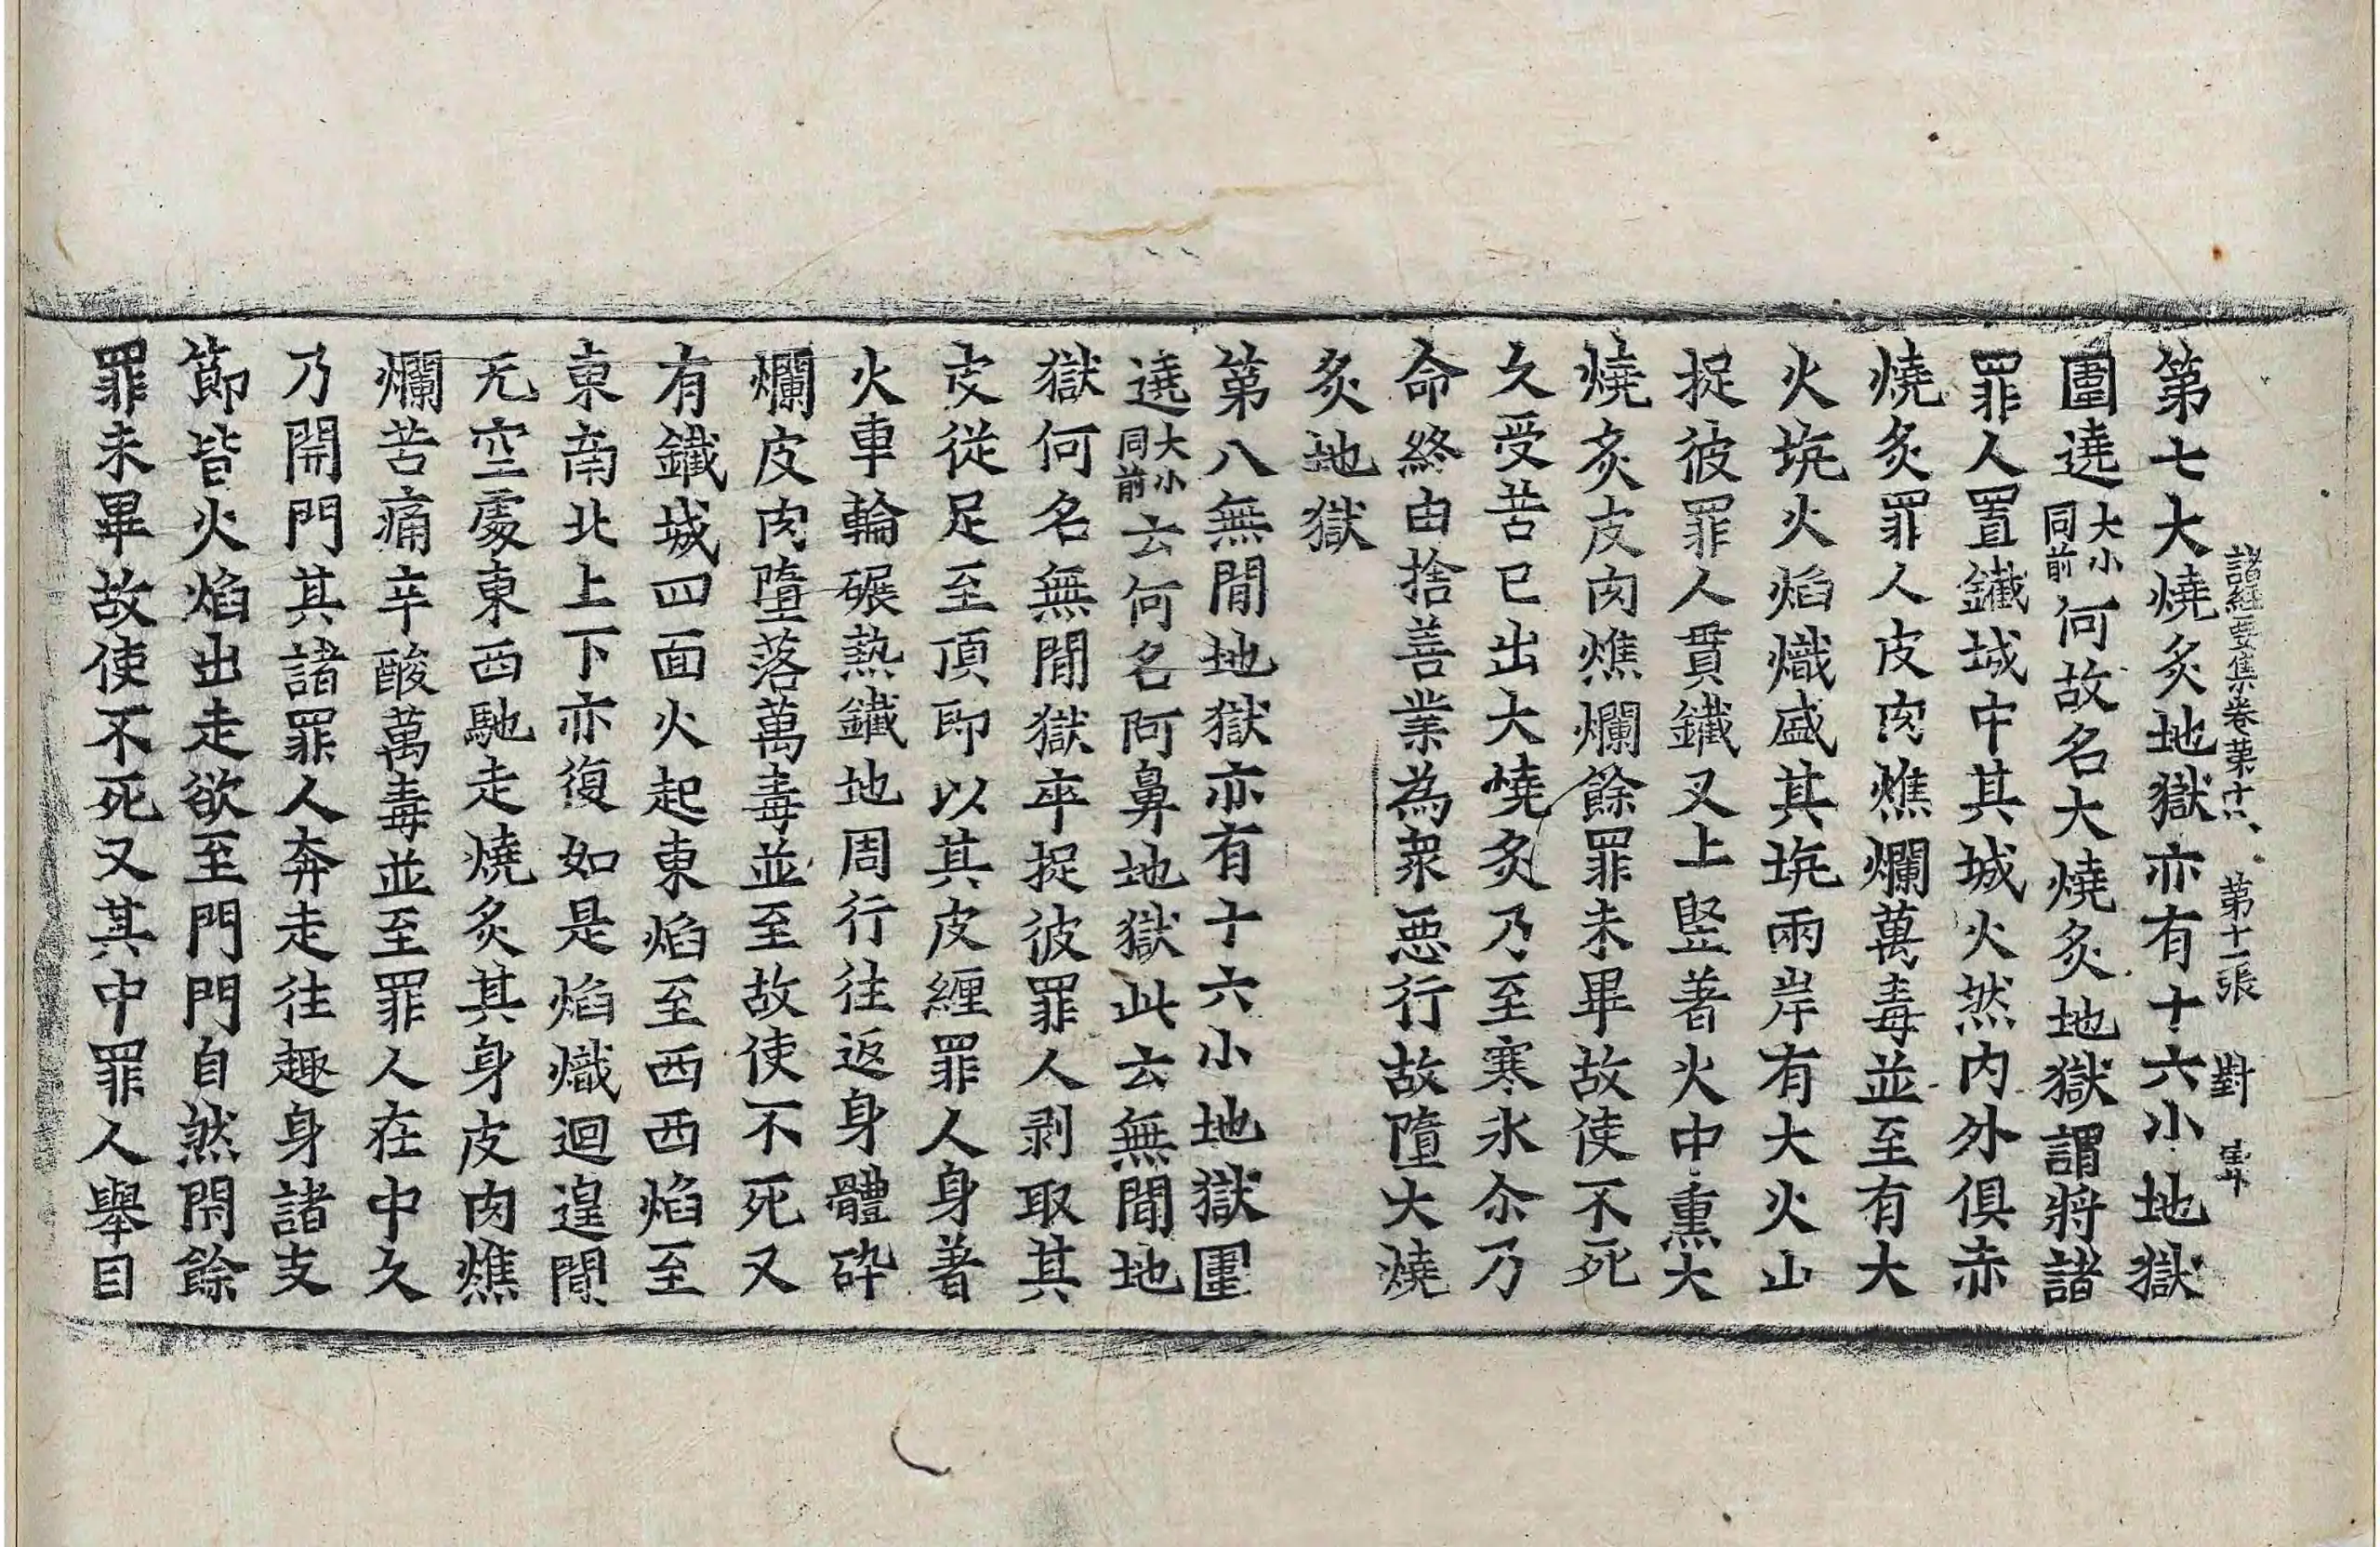 諸經要集卷第十八 第十一張 對
第七大燒炙地獄亦有十六小地獄
圍遶大小同前何故名大燒炙地獄謂將諸
罪人置鐵城中其城火然內外俱赤
燒炙罪人皮肉燋爛萬毒並至有大
火坑火焰熾盛其坑兩岸有大火山
捉彼罪人貫鐵叉上竪著火中熏大
燒炙皮肉燋爛餘罪未畢故使不死
久受苦已出大燒炙乃至寒氷尒乃
命終由捨善業為衆惡行故墮大燒
炙地獄
第八無間地獄亦有十六小地獄圍
遶大小同前云何名阿鼻地獄此云無間地
獄何名無間獄卒捉彼罪人剥取其
皮從足至頂即以其皮纏罪人身著
火車輪碾熱鐵地周行往返身體碎
爛皮肉墮落萬毒並至故使不死又
有鐵城四面火起東焰至西西焰至
東南北上下亦復如是焰熾迴遑間
无空處東西馳走燒炙其身皮肉燋
爛苦痛辛酸萬毒並至罪人在中久
乃開門其諸罪人奔走往趣身諸支
節皆火焰出走欲至門門自然閇餘
罪未畢故使不死又其中罪人舉目